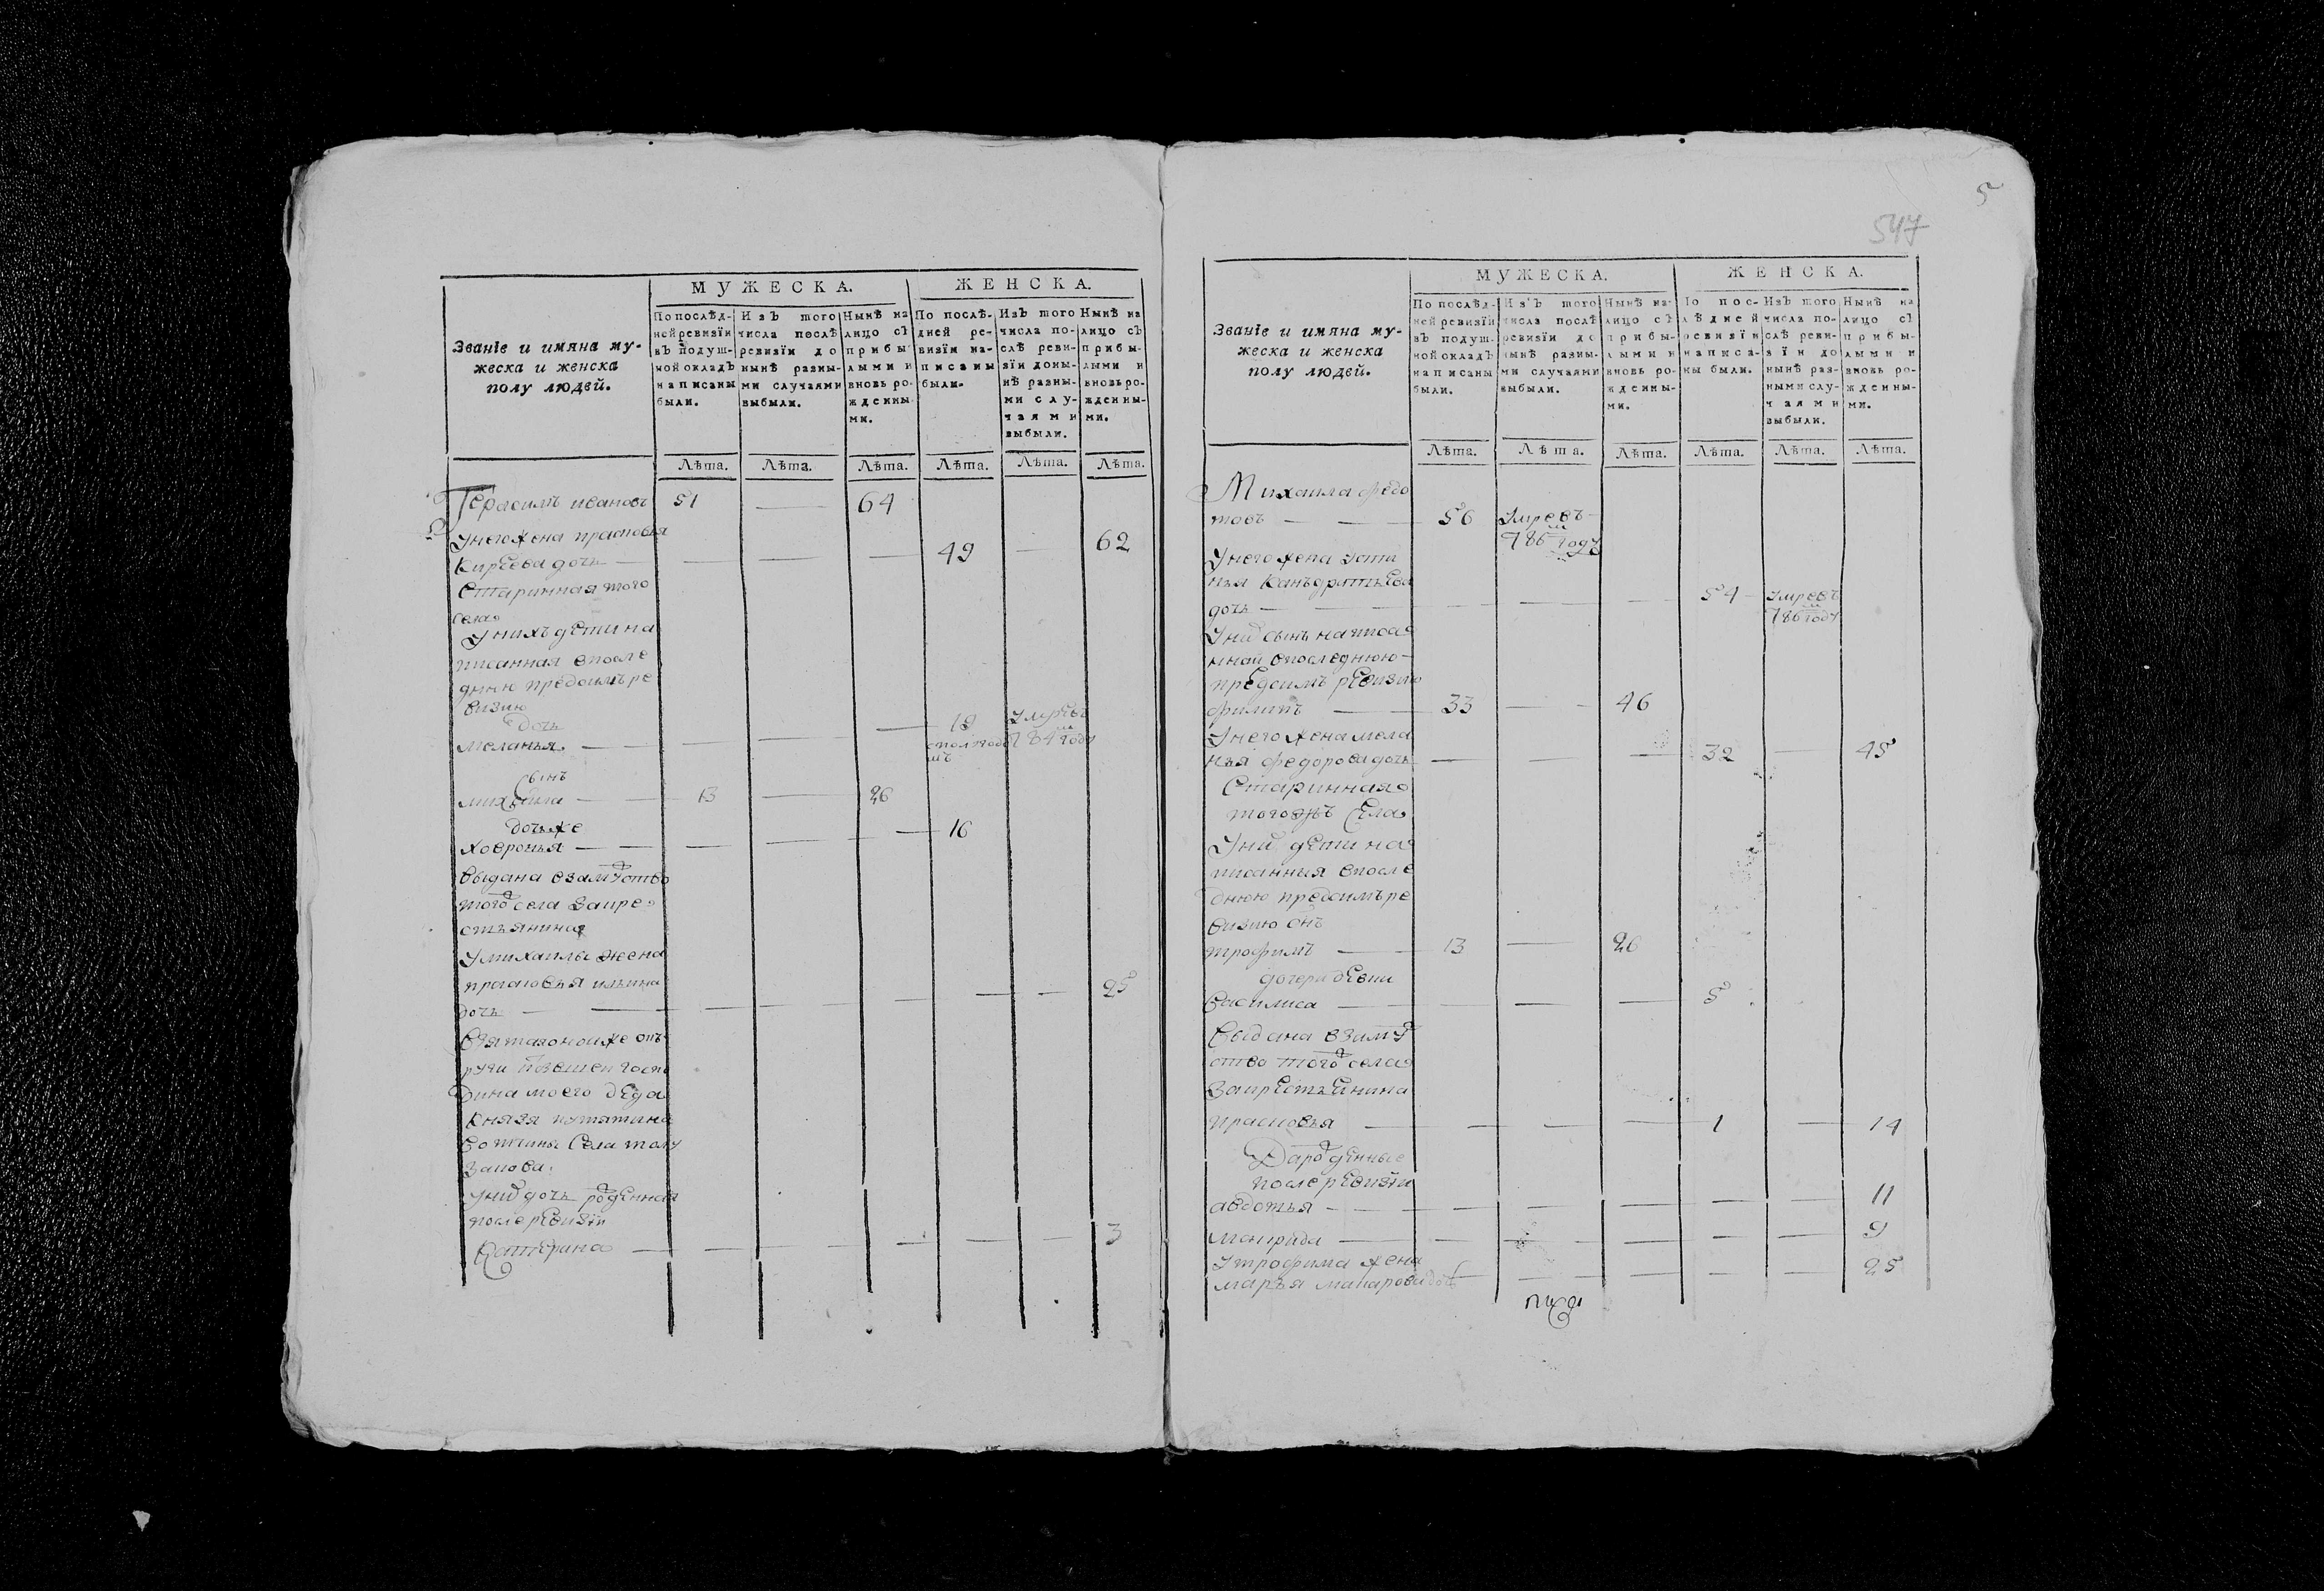 5
547
МУЖЕСКА.
ЖЕНСКА.
Званїе и имяна му-
жеска и женска
полу людей.
По послѣд-
ней ревизїи
въ подуш-
ной окладъ
написаны
были.
Изъ того
числа послѣ
ревизїи до
нынѣ разны-
ми случаями
выбыли.
Нынѣ на
лицо съ
прибы-
лыми и
вновь ро-
жденны-
ми.
По послѣ-
дней ре-
визїи на-
писаны
были.
Изъ того
числа по-
слѣ реви-
зїи доны-
нѣ разны-
ми слу-
чаями
выбыли.
Нынѣ на
лицо съ
прибы-
лыми и
вновь ро-
жденны-
ми.
Лѣта. Лѣта. Лѣта. Лѣта. Лѣта. Лѣта.
Герасимъ ивановъ 51 — 64
Унего жена прасковья
Киреева дочь — — — — 49 — 62
Старинная того
села
Унихъ дети на
писанная впосле
днюю предсимъ ре
визию
дочь
меланья — — — — 19 Умре
784 году
сынъ
михайла — 13 — 26
дочь же
ховронья — — — — 16
выдана взамужство
того села за кре
стьянина
Умихаилы жена
прасковья ильина
дочь — — — — — — — 25
дина моего деда
Князя путятина
вотчины Села
Уних дочь рожденная
после ревизїи
Катерина — — — — — — 3
МУЖЕСКА.
ЖЕНСКА.
Званїе и имяна му-
жеска и женска
полу людей.
По послѣд-
ней ревизїи
въ подуш-
ной окладъ
написаны
были.
Изъ того
числа послѣ
ревизїи до
нынѣ разны-
ми случаями
выбыли.
Нынѣ на-
лицо съ
прибы-
лыми и
вновь ро-
жденны-
ми.
По пос-
лѣдней
ревизїи
написа-
ны были.
Изъ того
числа по-
слѣ реви-
зїи до
нынѣ раз-
ными слу-
чаями
выбыли.
Нынѣ на
лицо съ
прибы-
лыми и
вновь ро-
жденны-
ми.
Лѣта. Лѣта. Лѣта. Лѣта. Лѣта. Лѣта.
Михаила федо
товъ — — 56 Умре въ
786 м году
Унего жена Усти
нья Кандратьева
дочь — — — — — 54 Умре въ
786 м году
Уних сынъ написа
нной впоследнюю
предсимъ ревизию
филипъ — 33 — 46
Унего жена мела
нья федорова дочь — — — 32 — 45
Старинная
тогожъ Села
Уних дети на
писанныя впосле
днюю предсимъ ре
визию сынъ
трофимъ — 13 — 26
дочери девки
Василиса — — — — 5
Выдана взамуж
ство того села
за крестьянина
прасковья — — — — 1 — 14
Да рожденные
после ревизїи
авдотья — — — — — — 11
— — — — — — 9
Утрофима жена
марья макарова дочь — — — — — 25